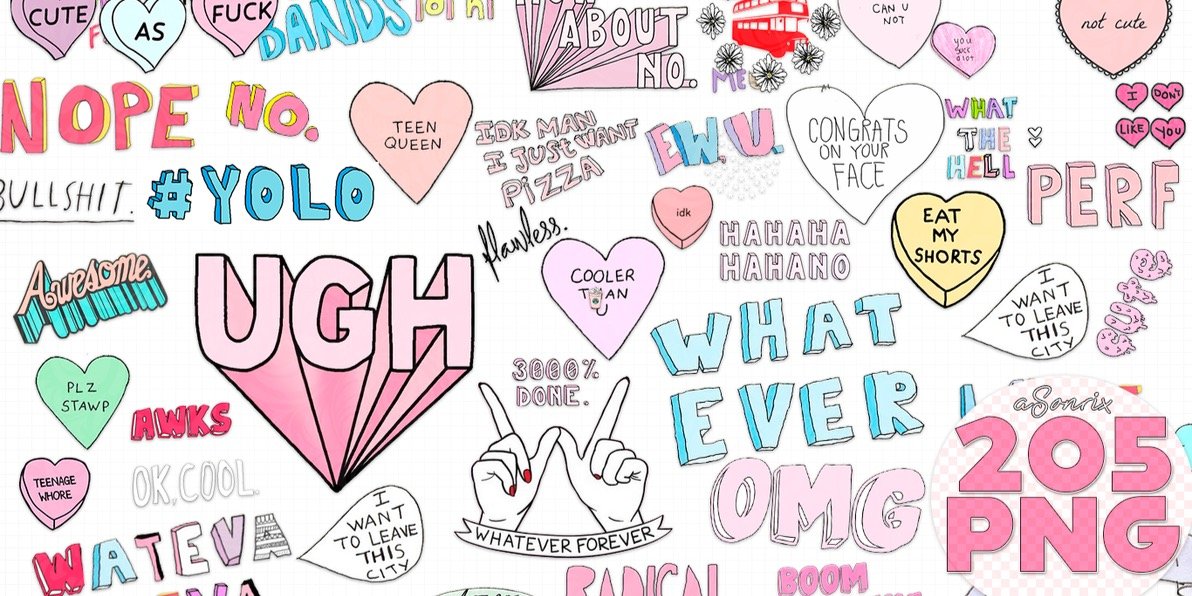 CUTE
AS
FUCK
BANDS
ABOUT
NO.
ME
CAN U
NOT
you
suck
a lot
not cute
NOPE
NO.
TEEN
QUEEN
IDK MAN
I JUST WANT
PIZZA
EW.U.
CONGRATS
ON YOUR
FACE
WHAT
THE
HELL
I DON'T
LIKE YOU
BULLSHIT.
#YOLO
flawless.
idk
HAHAHA
HAHANO
EAT
MY
SHORTS
PERF
Awesome.
UGH
COOLER
THAN
U
WHAT
EVER
I
WANT
TO LEAVE
THIS
CITY
cute
PLZ
STAWP
AWKS
3000%
DONE.
TEENAGE
WHORE
OK, COOL.
WATEVA
I
WANT
TO LEAVE
THIS
CITY
WHATEVER FOREVER
OMG
aSonrix
205
PNG
RADICAL
BOOM